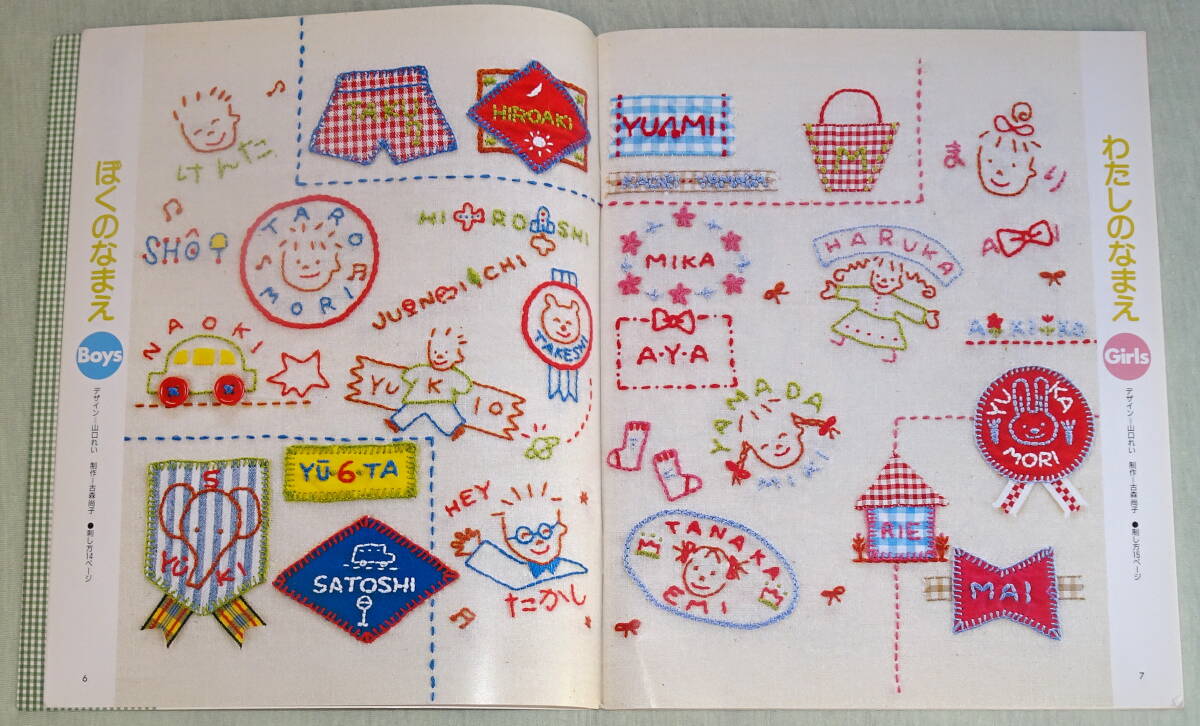 ぼくのなまえ
Boys
デザイン=山口れい 制作=古森尚子 ●刺し方14ページ
けんた
TAKU
HIROAKI
SHŌ
TARO
MORI
HIROSHI
JUN-ICHI
TAKESHI
NAOKI
YUKIO
S
YUKI
YŪ·6·TA
SATOSHI
HEY
たかし
6
YUMI
M
まり
MIKA
HARUKA
A·Y·A
AKIKO
YAMADA
MIKI
YUKA
MORI
TANAKA
EMI
RIE
MAI
わたしのなまえ
Girls
デザイン=山口れい 制作=古森尚子 ●刺し方15ページ
7